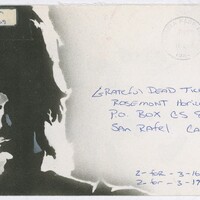 GRATEFUL DEAD
ROSEMONT
P.O. BOX CS
SAN RAFEL CA
2 - FOR - 3-16
2 - FOR - 3-17